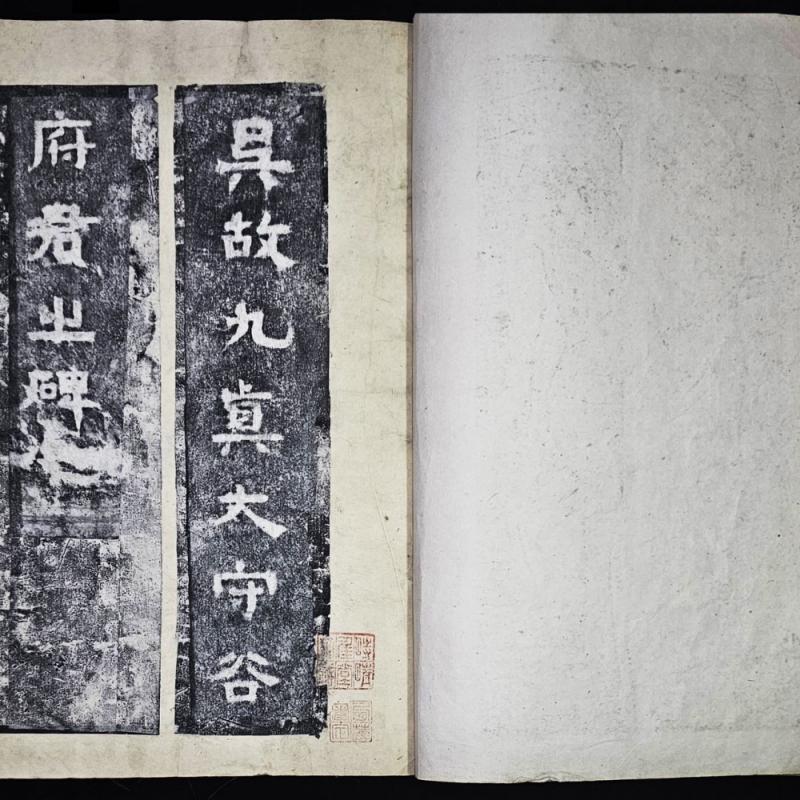 吳故九真太守谷
府君之碑